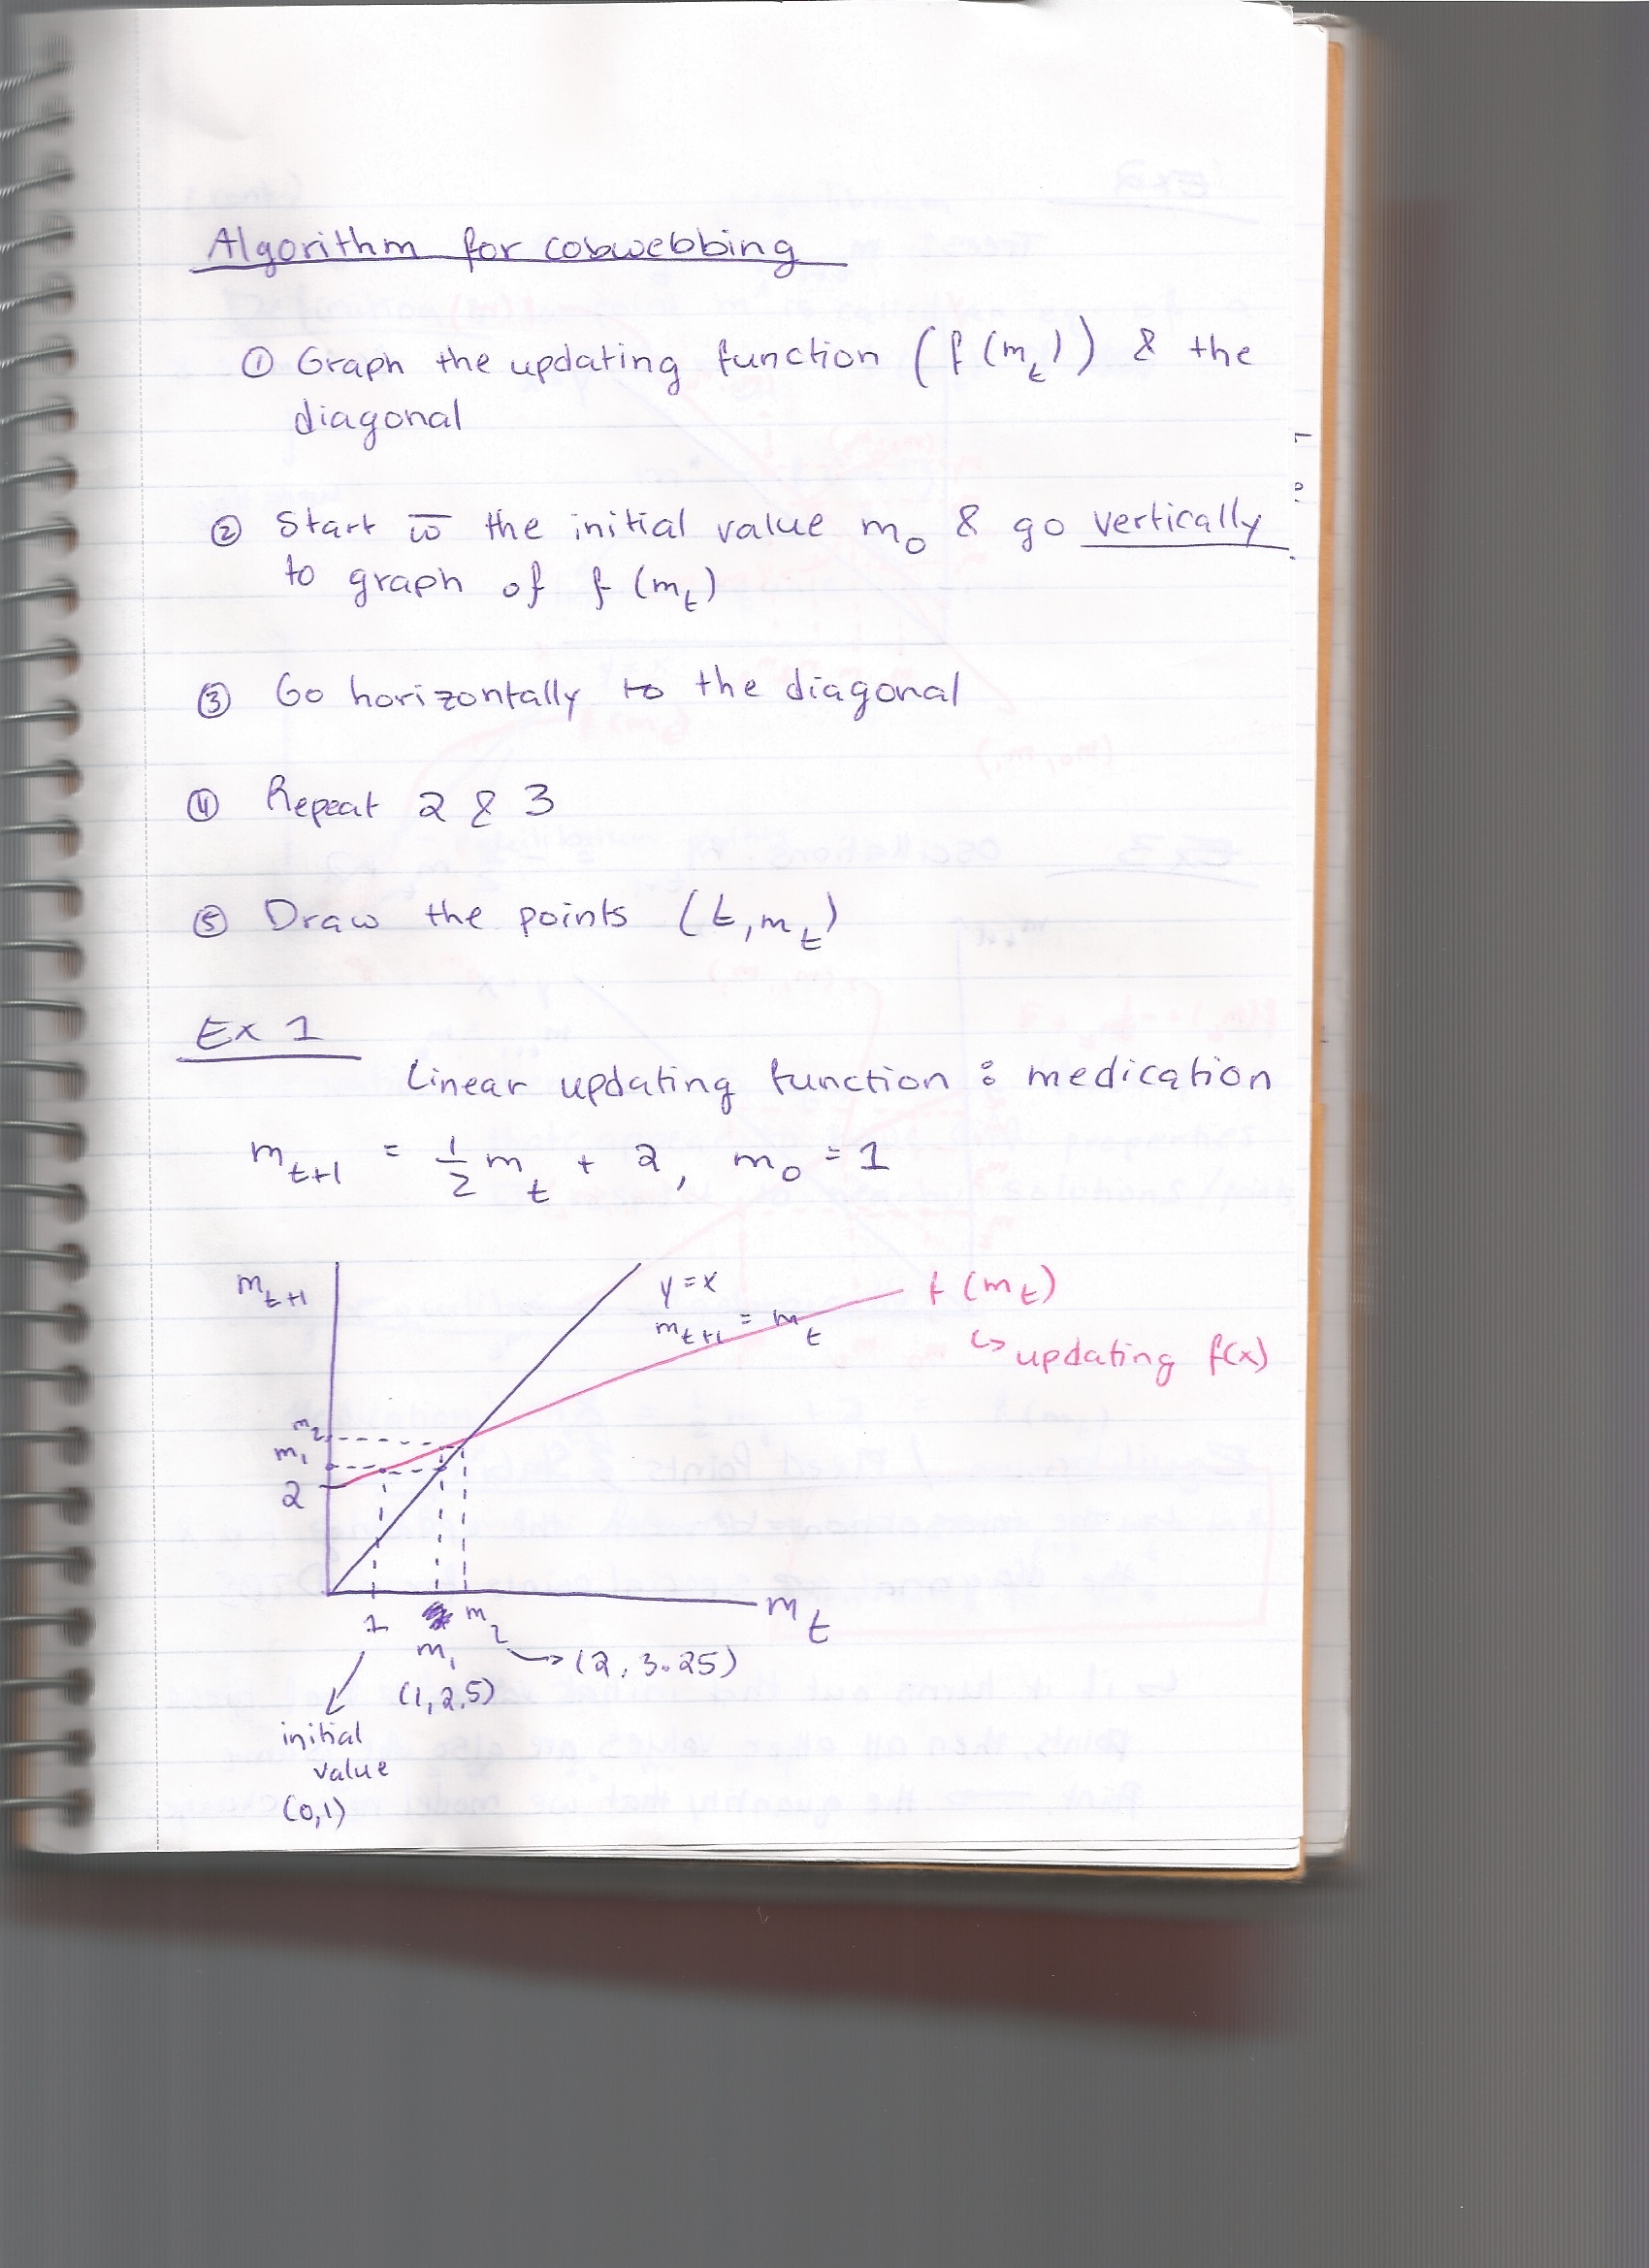 Algorithm for cobwebbing
① Graph the updating function (f(m_t)) & the
diagonal
② Start w̅ the initial value m_0 & go vertically
to graph of f(m_t)
③ Go horizontally to the diagonal
④ Repeat 2 & 3
⑤ Draw the points (t, m_t)
Ex 1
Linear updating function : medication
m_{t+1} = 1/2 m_t + 2, m_0 = 1
m_{t+1}
y = x
m_{t+1} = m_t
f(m_t)
↳ updating f(x)
m_2
m_1
2
1
m_1
m_2
m_t
→ (2, 3.25)
(1, 2.5)
initial
value
(0,1)